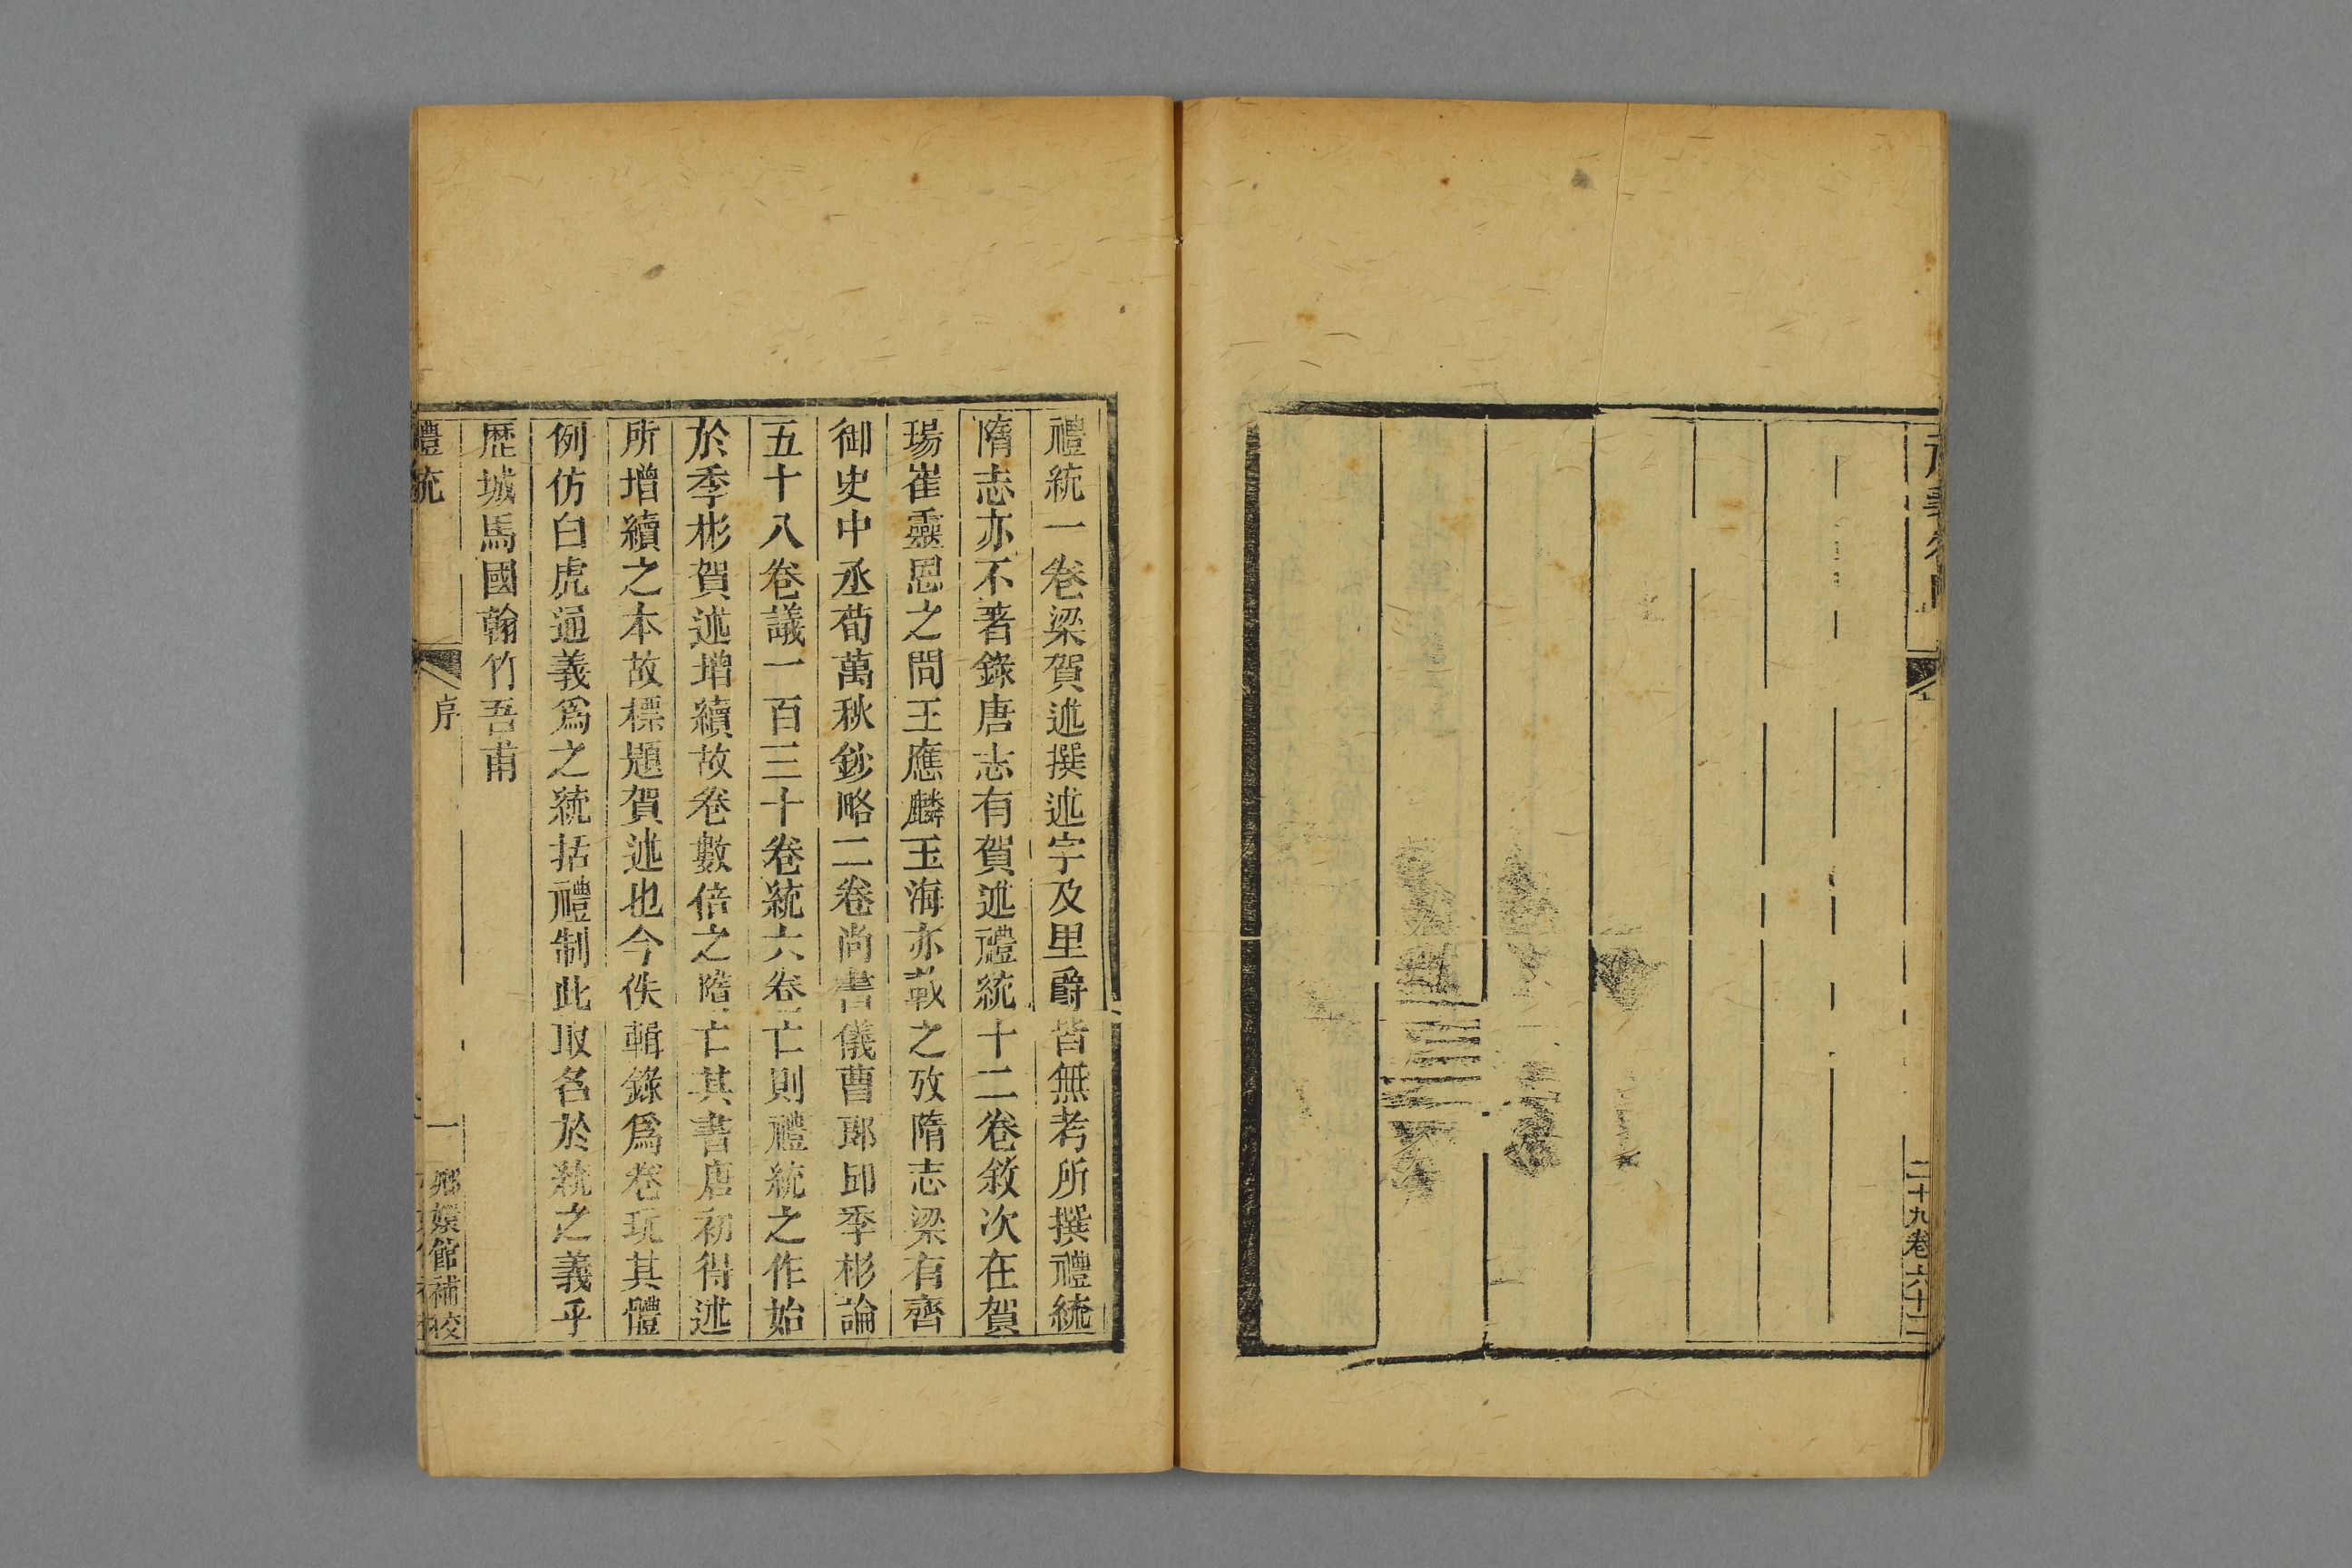 二十九卷六十二
禮統一卷梁賀述撰述字及里爵皆無考所撰禮統
隋志亦不著錄唐志有賀述禮統十二卷敘次在賀
瑒崔靈恩之問王應麟玉海亦載之攷隋志梁有齊
御史中丞荀萬秋鈔略二卷尚書儀曹郎邱季彬論
五十八卷議一百三十卷統六卷亡則禮統之作始
於季彬賀述增續故卷數倍之隋亡其書唐初得述
所增續之本故標題賀述也今佚輯錄為卷玩其體
例仿白虎通義爲之統括禮制此取名於統之義乎
歷城馬國翰竹吾甫
禮統
序
一
嫏嬛館補校